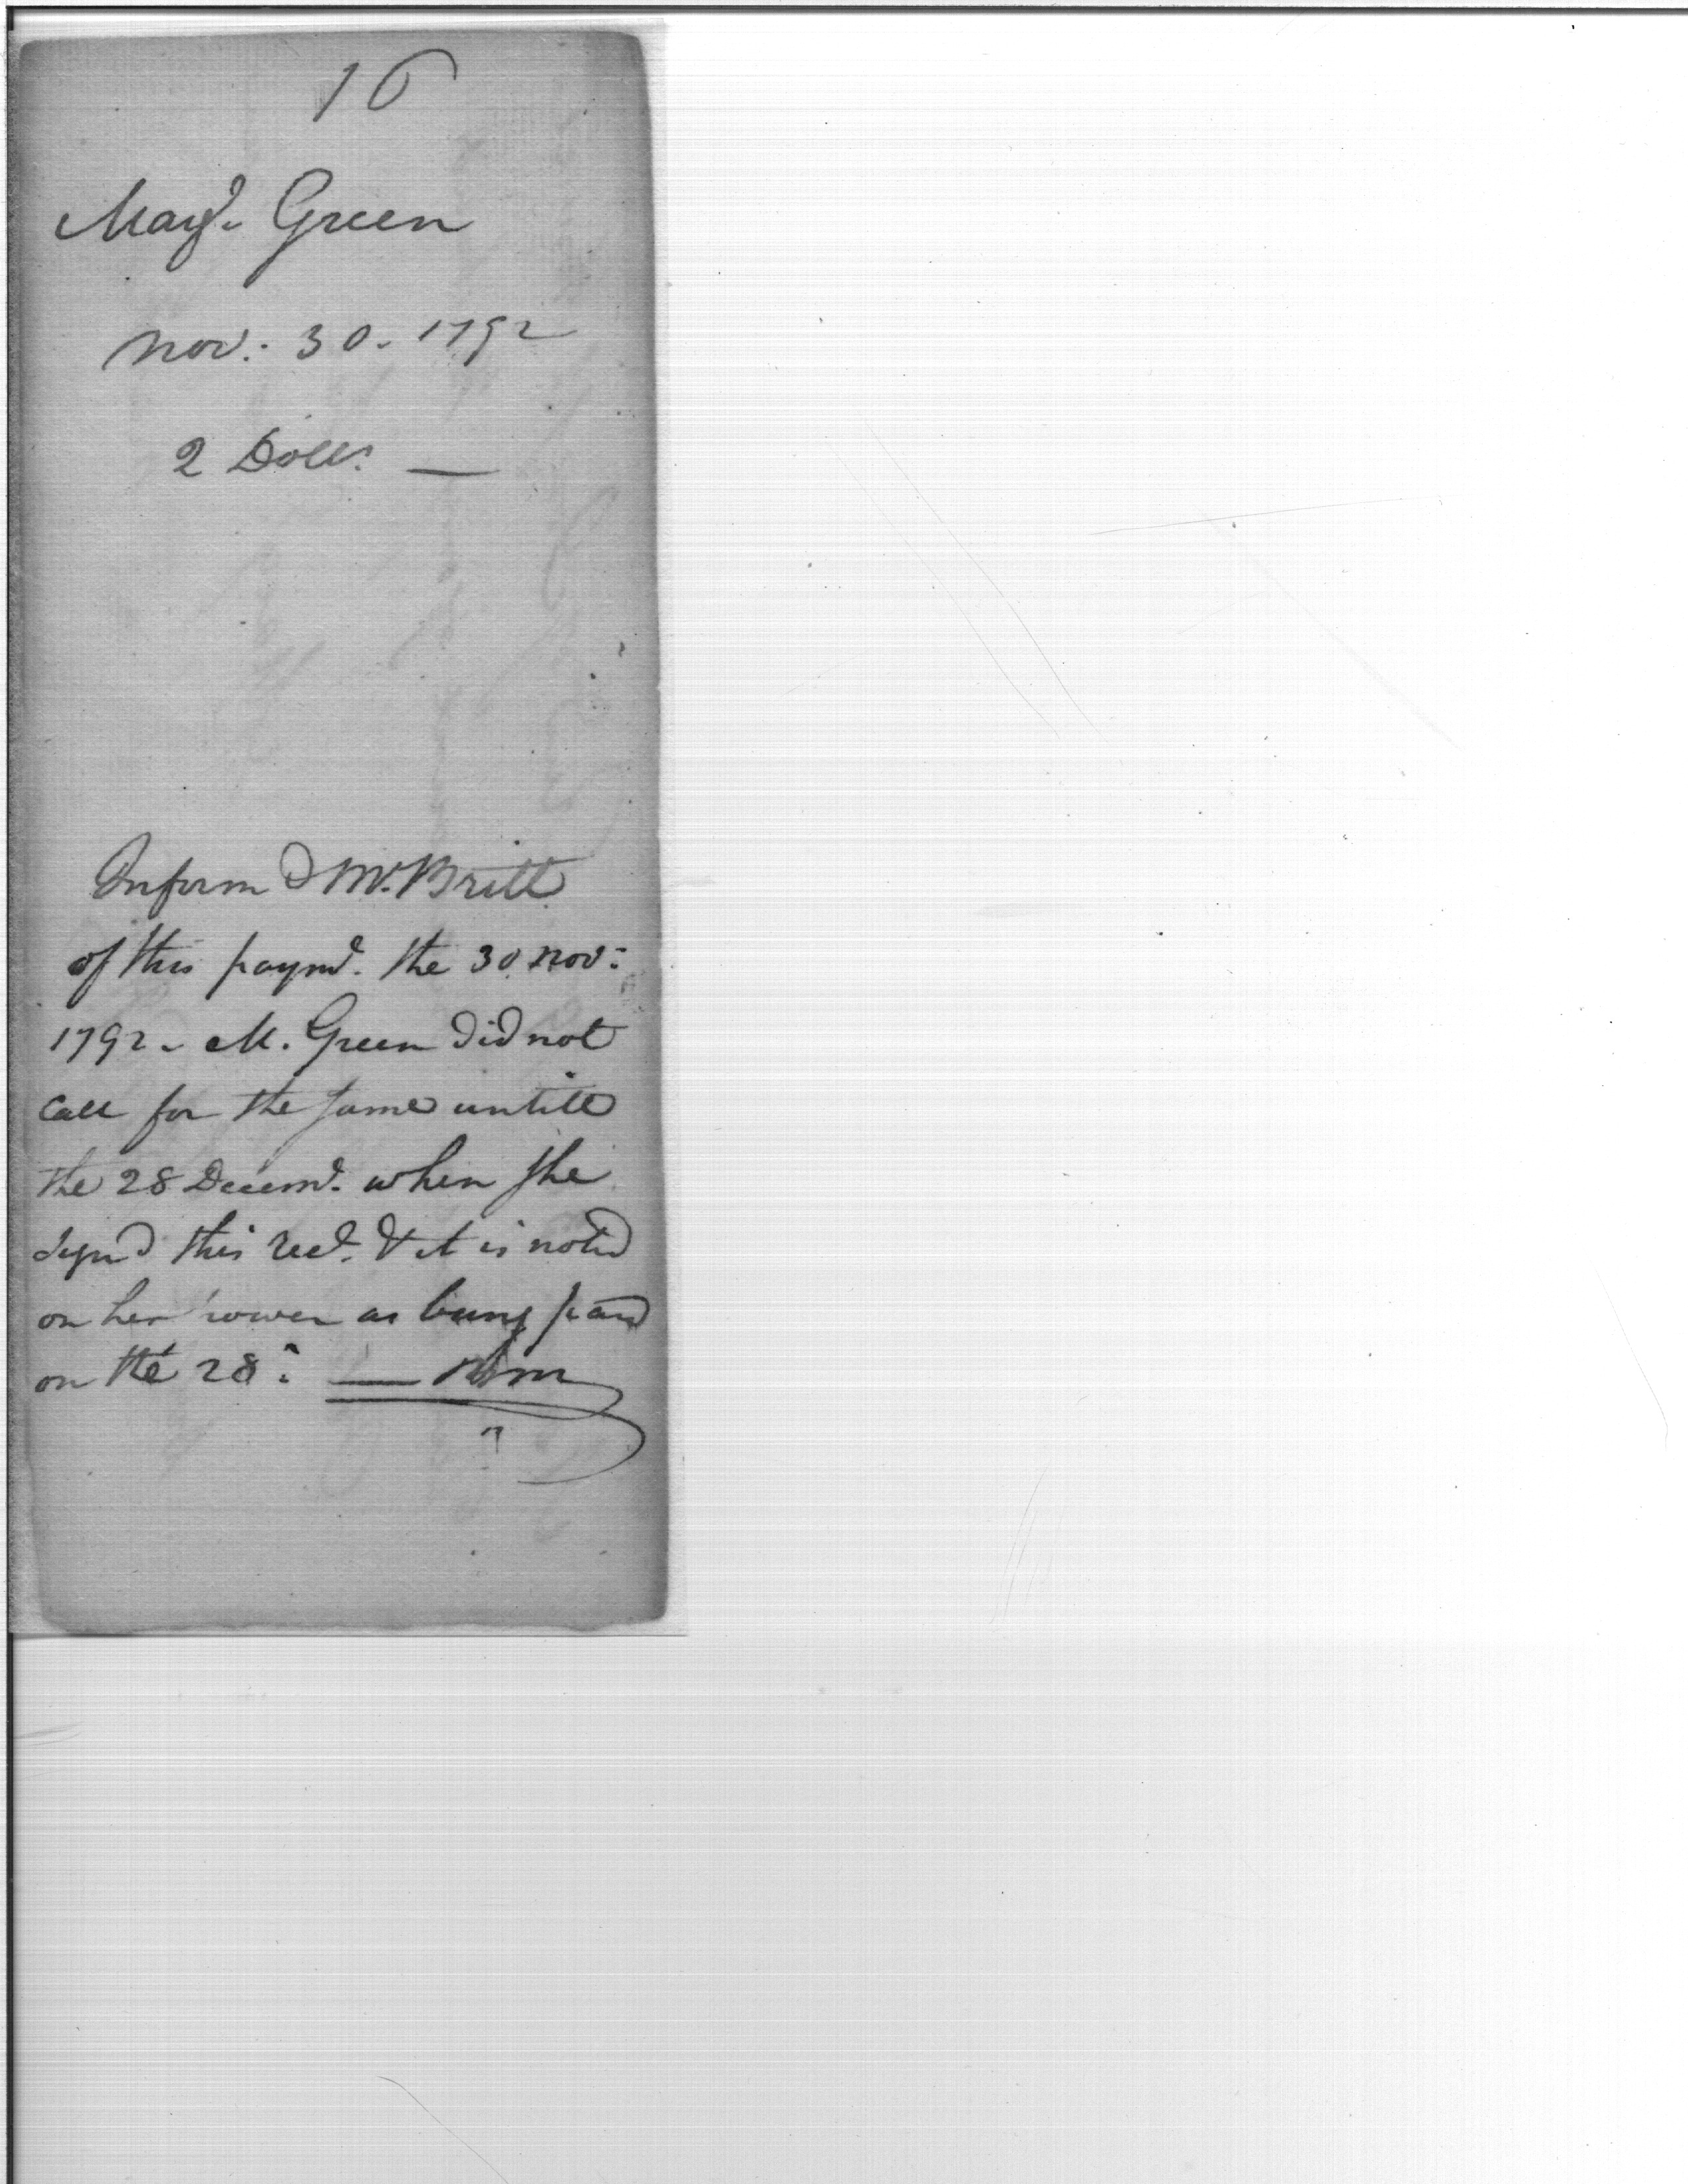 16
Margt. Green
Nov: 30. 1792
2 Dolls. —
Inform'd Mr. Britt
of this paymt. the 30 Nov:
1792 - M. Green did not
Call for the same untill
the 28 Decemr. when she
signd this rect. & it is noted
on her power as being paid
on the 28: